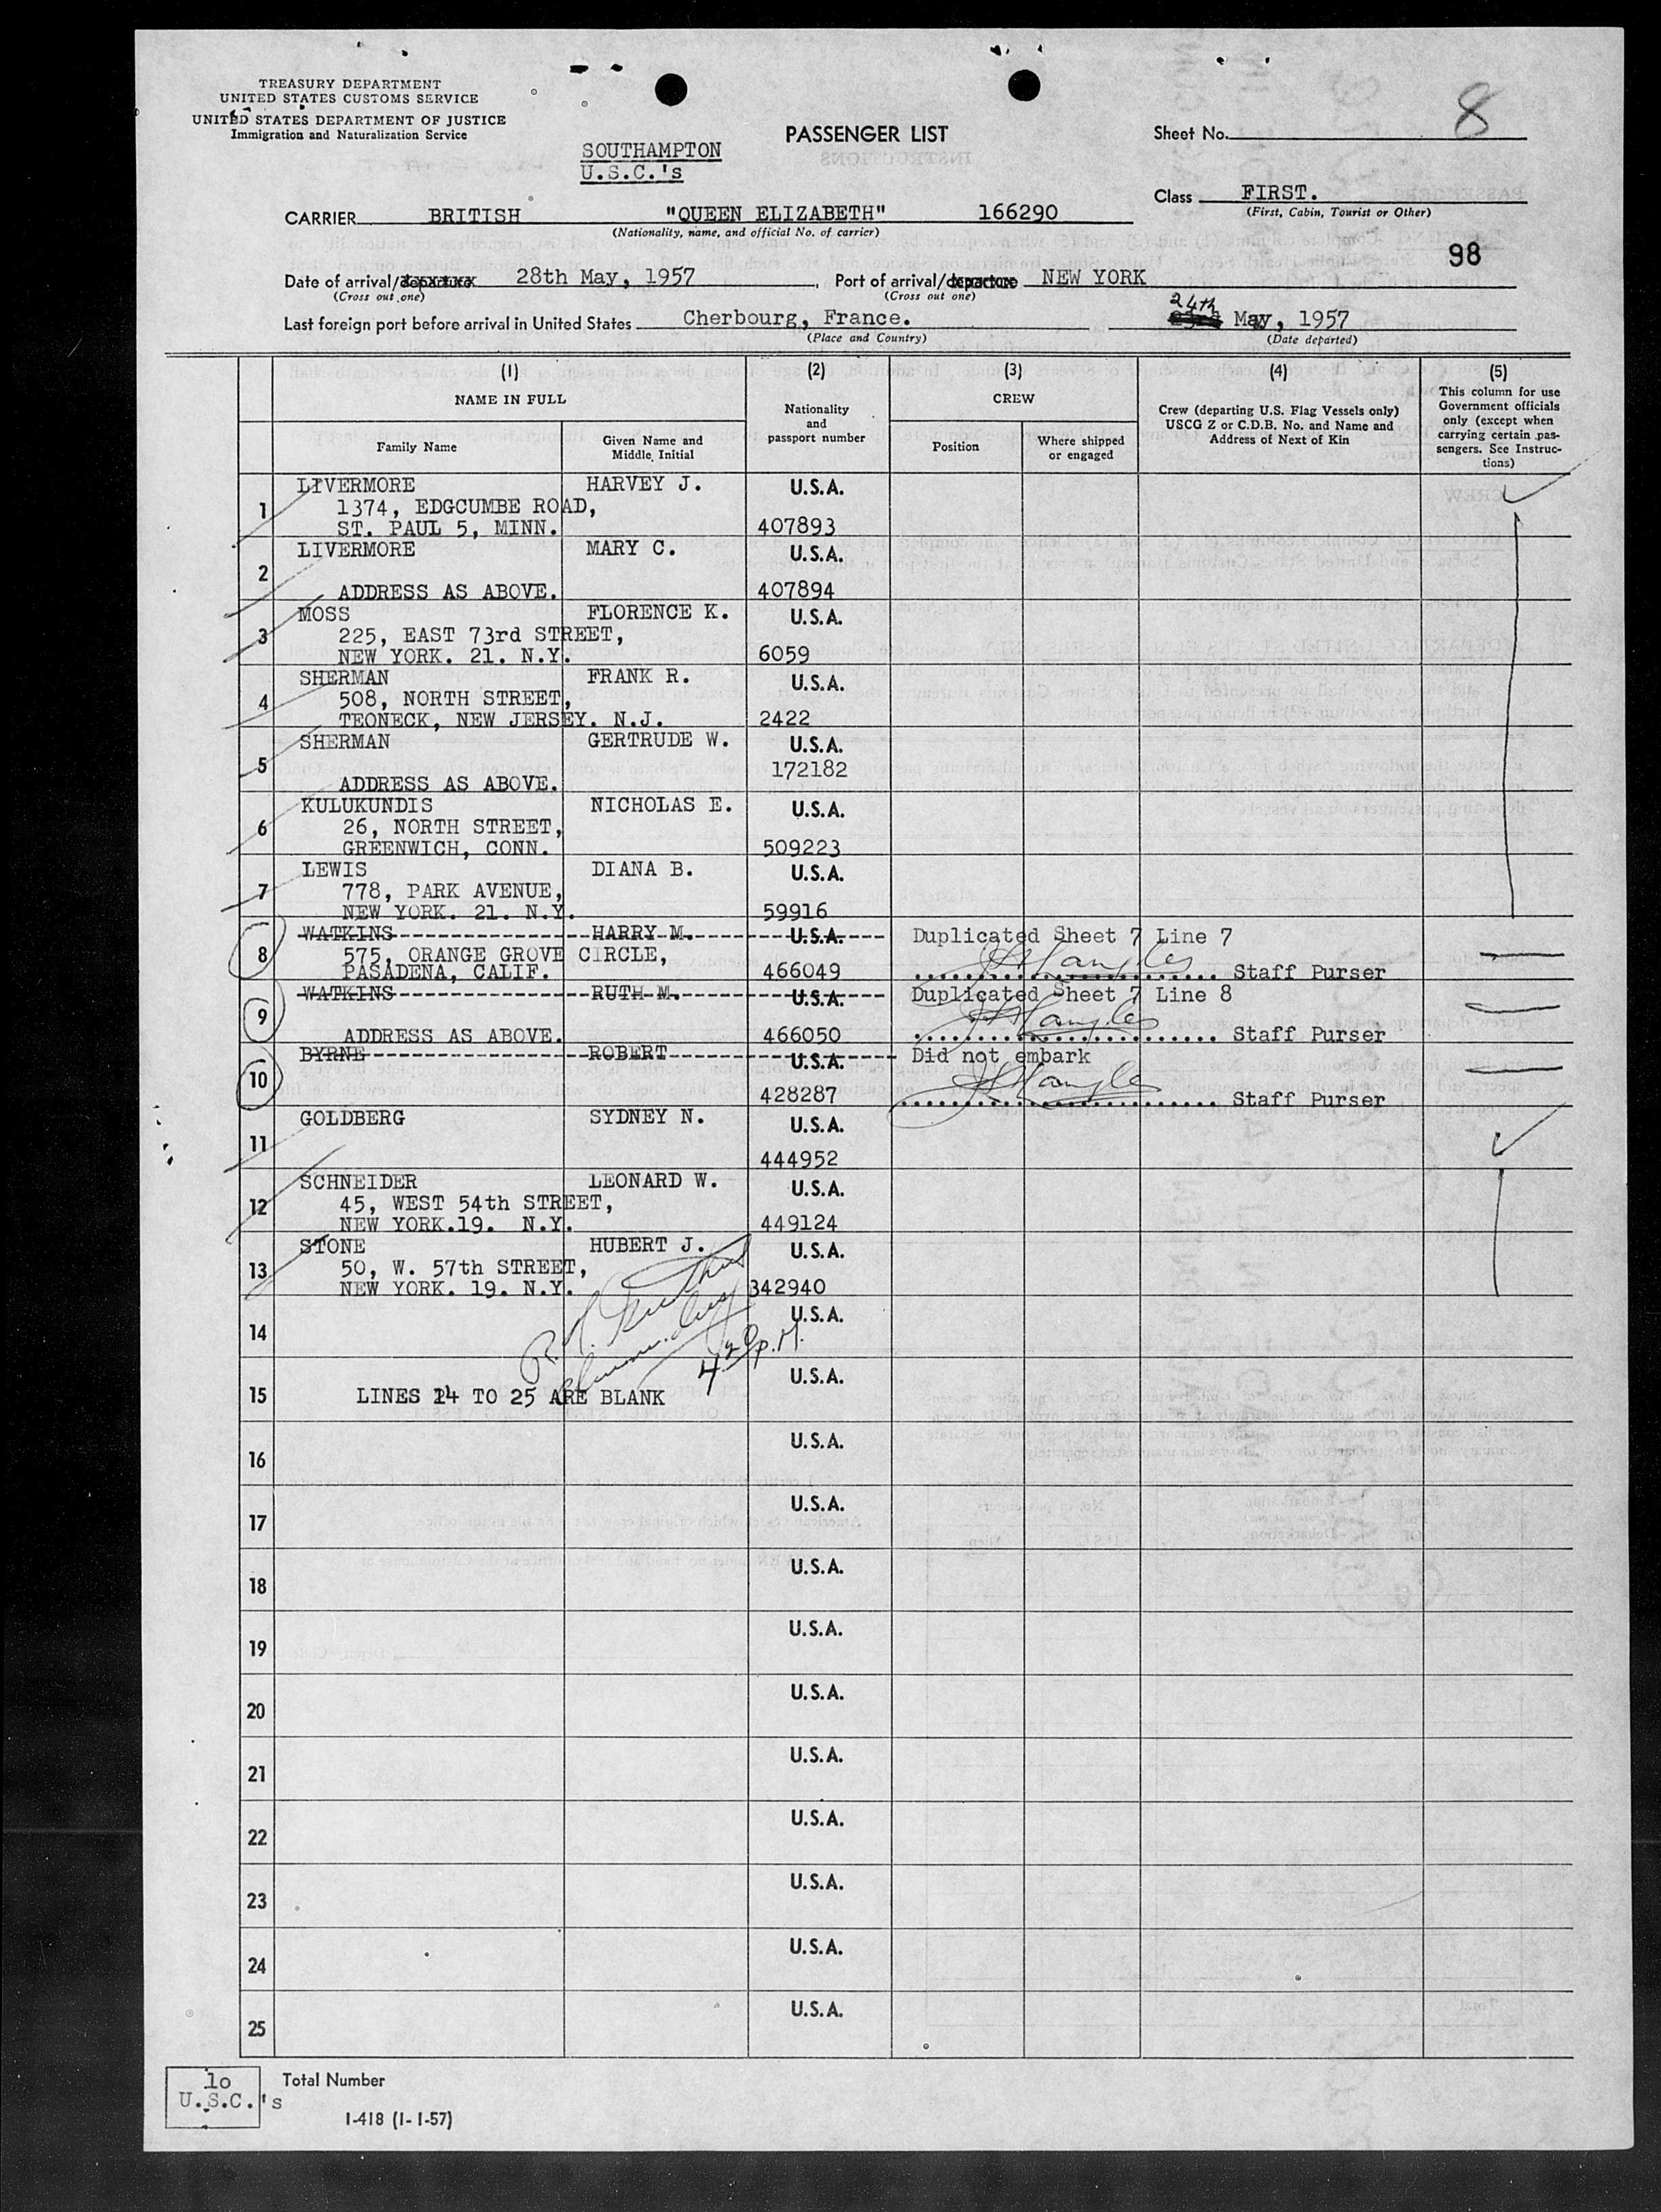 TREASURY DEPARTMENT
UNITED STATES CUSTOMS SERVICE
UNITED STATES DEPARTMENT OF JUSTICE
Immigration and Naturalization Service
SOUTHAMPTON
U.S.C.'s
PASSENGER LIST
Sheet No. 8
Class FIRST.
(First, Cabin, Tourist or Other)
CARRIER BRITISH "QUEEN ELIZABETH" 166290
(Nationality, name, and official No. of carrier)
98
Date of arrival/departure 28th May, 1957, Port of arrival/departure NEW YORK
(Cross out one) (Cross out one)
24th
Last foreign port before arrival in United States Cherbourg, France. 23rd May, 1957
(Place and Country) (Date departed)
(1) (2) (3) (4) (5)
NAME IN FULL
Family Name
Given Name and Middle Initial
Nationality and passport number
CREW
Position
Where shipped or engaged
Crew (departing U.S. Flag Vessels only) USCG Z or C.D.B. No. and Name and Address of Next of Kin
This column for use Government officials only (except when carrying certain pas-sengers. See Instruc-tions)
1 LIVERMORE HARVEY J. U.S.A.
1374, EDGCUMBE ROAD,
ST. PAUL 5, MINN. 407893
2 LIVERMORE MARY C. U.S.A.
ADDRESS AS ABOVE. 407894
3 MOSS FLORENCE K. U.S.A.
225, EAST 73rd STREET,
NEW YORK. 21. N.Y. 6059
4 SHERMAN FRANK R. U.S.A.
508, NORTH STREET,
TEONECK, NEW JERSEY. N.J. 2422
5 SHERMAN GERTRUDE W. U.S.A.
172182
ADDRESS AS ABOVE.
6 KULUKUNDIS NICHOLAS E. U.S.A.
26, NORTH STREET,
GREENWICH, CONN. 509223
7 LEWIS DIANA B. U.S.A.
778, PARK AVENUE,
NEW YORK. 21. N.Y. 59916
8 WATKINS HARRY M. U.S.A. Duplicated Sheet 7 Line 7
575, ORANGE GROVE CIRCLE,
PASADENA, CALIF. 466049 Staff Purser
9 WATKINS RUTH M. U.S.A. Duplicated Sheet 7 Line 8
ADDRESS AS ABOVE. 466050 Staff Purser
10 BYRNE ROBERT U.S.A. Did not embark
428287 Staff Purser
11 GOLDBERG SYDNEY N. U.S.A.
444952
12 SCHNEIDER LEONARD W. U.S.A.
45, WEST 54th STREET,
NEW YORK.19. N.Y. 449124
13 STONE HUBERT J. U.S.A.
50, W. 57th STREET,
NEW YORK. 19. N.Y. 342940
14 U.S.A.
4 20 P.M.
15 U.S.A.
LINES 14 TO 25 ARE BLANK
16 U.S.A.
17 U.S.A.
18 U.S.A.
19 U.S.A.
20 U.S.A.
21 U.S.A.
22 U.S.A.
23 U.S.A.
24 U.S.A.
25 U.S.A.
10
U.S.C.'s
Total Number
I-418 (1-1-57)